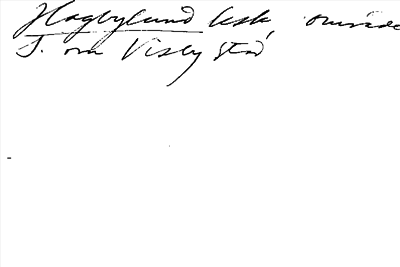 Hagbylund beb. område
S. om Visby stad